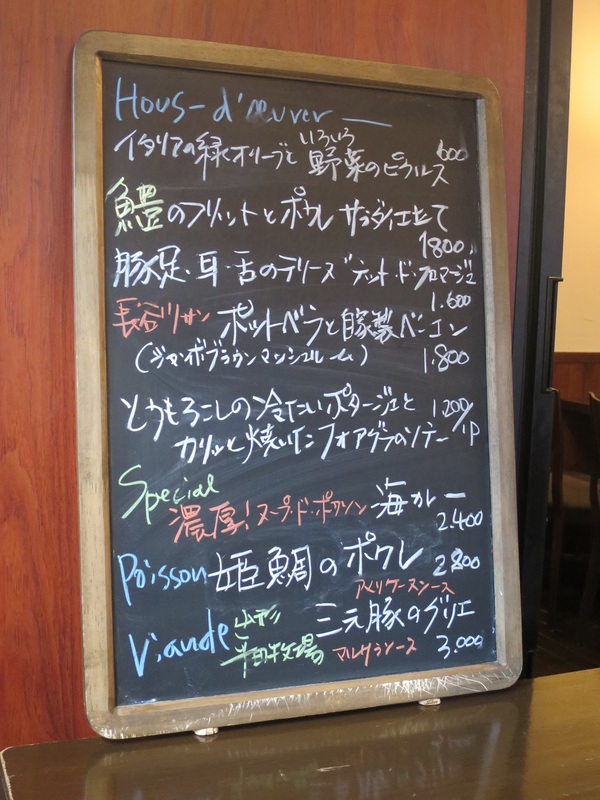 Hous-d'œuver
イタリアの緑オリーブと野菜のピクルス
いろいろ
600
鱧のフリットとポワレ サラダ仕立て
1800
豚足・耳・舌のテリーヌ テット・ド・フロマージュ
1.600
長谷川サン ポットベラと自家製ベーコン
(ジャンボブラウンマッシュルーム) 1.800
とうもろこしの冷たいポタージュと 1.200/1P
カリッと焼いたフォアグラのソテー
Special
濃厚!スープ・ド・ポワソン 海カレー
2.400
Poisson 姫鯛のポワレ 2800
アメリケーヌソース
Viande 山形 三元豚のグリエ
平田牧場 マルサラソース 3.000